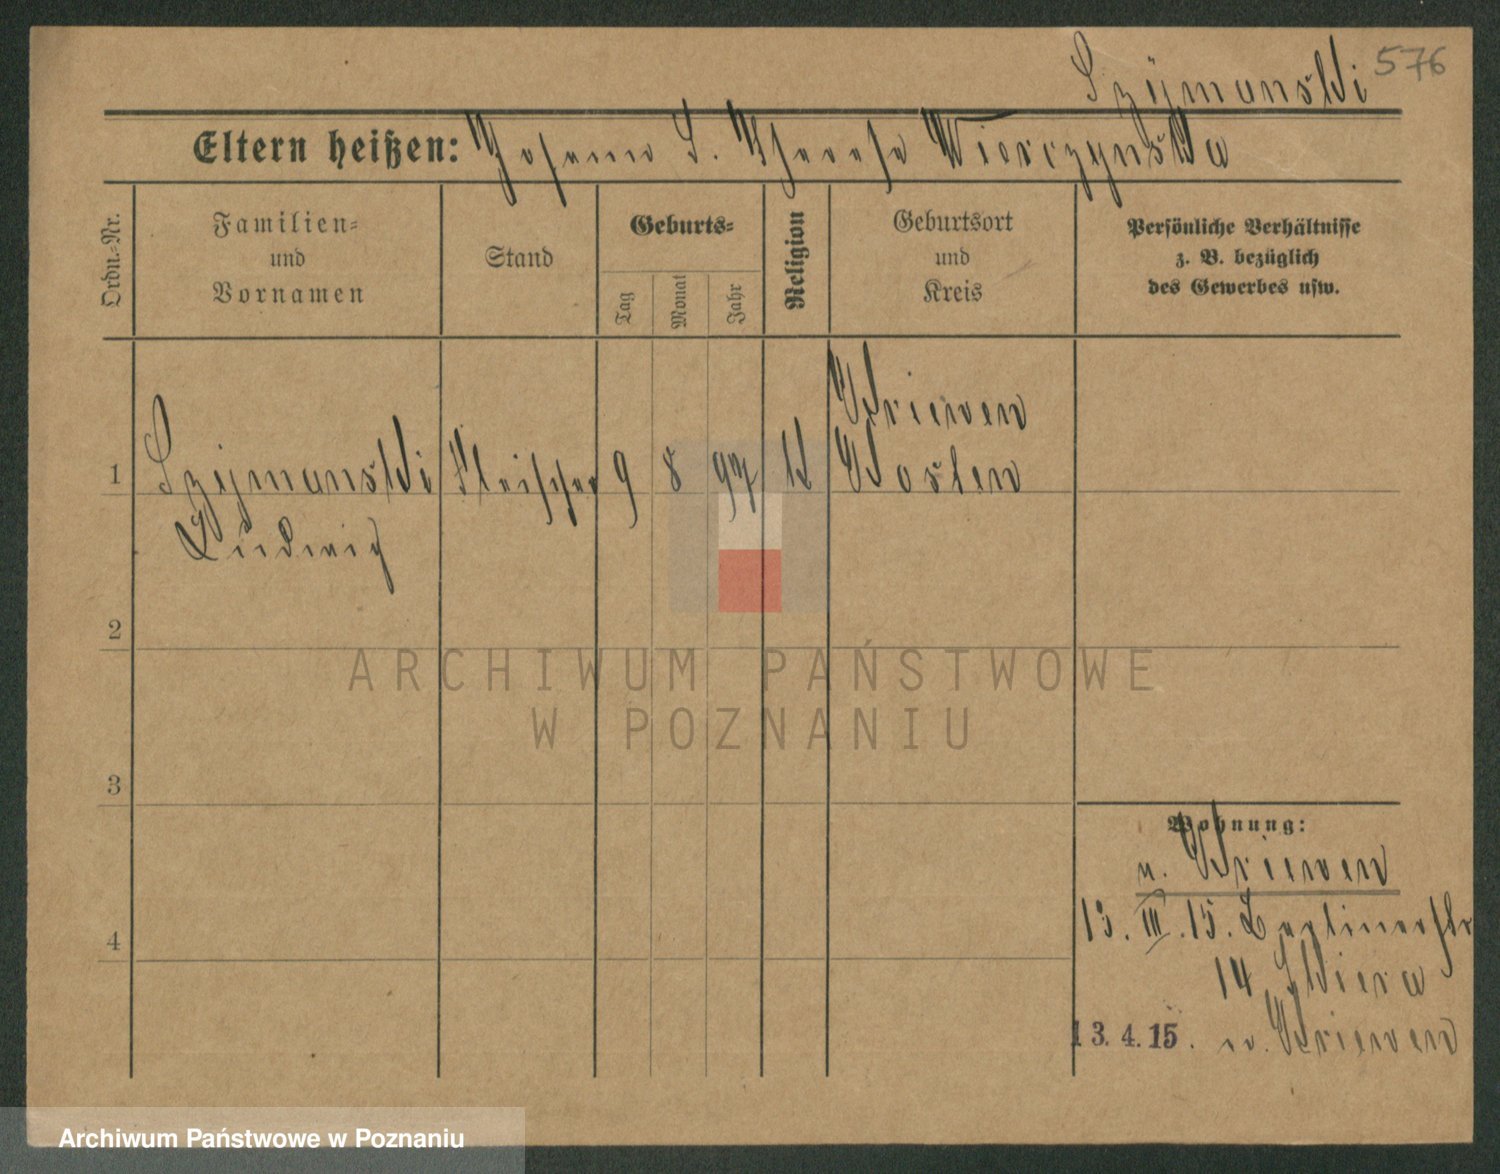 Szÿmanski 576
Eltern heißen: Johann S. Therese Wierczynska
Ordn.-Nr.
Familien-
und
Vornamen
Stand
Geburts-
Tag
Monat
Jahr
Religion
Geburtsort
und
Kreis
Persönliche Verhältnisse
z. B. bezüglich
des Gewerbes usw.
Kriewen
1 Szÿmanski Fleischer 9 8 97 k Kosten
Ludwig
2
ARCHIWUM PAŃSTWOWE
W POZNANIU
3
Wohnung:
n. Kriewen
4
13. III. 15. Berlinerstr
14 Skiera
13.4.15. n. Kriewen
Archiwum Państwowe w Poznaniu